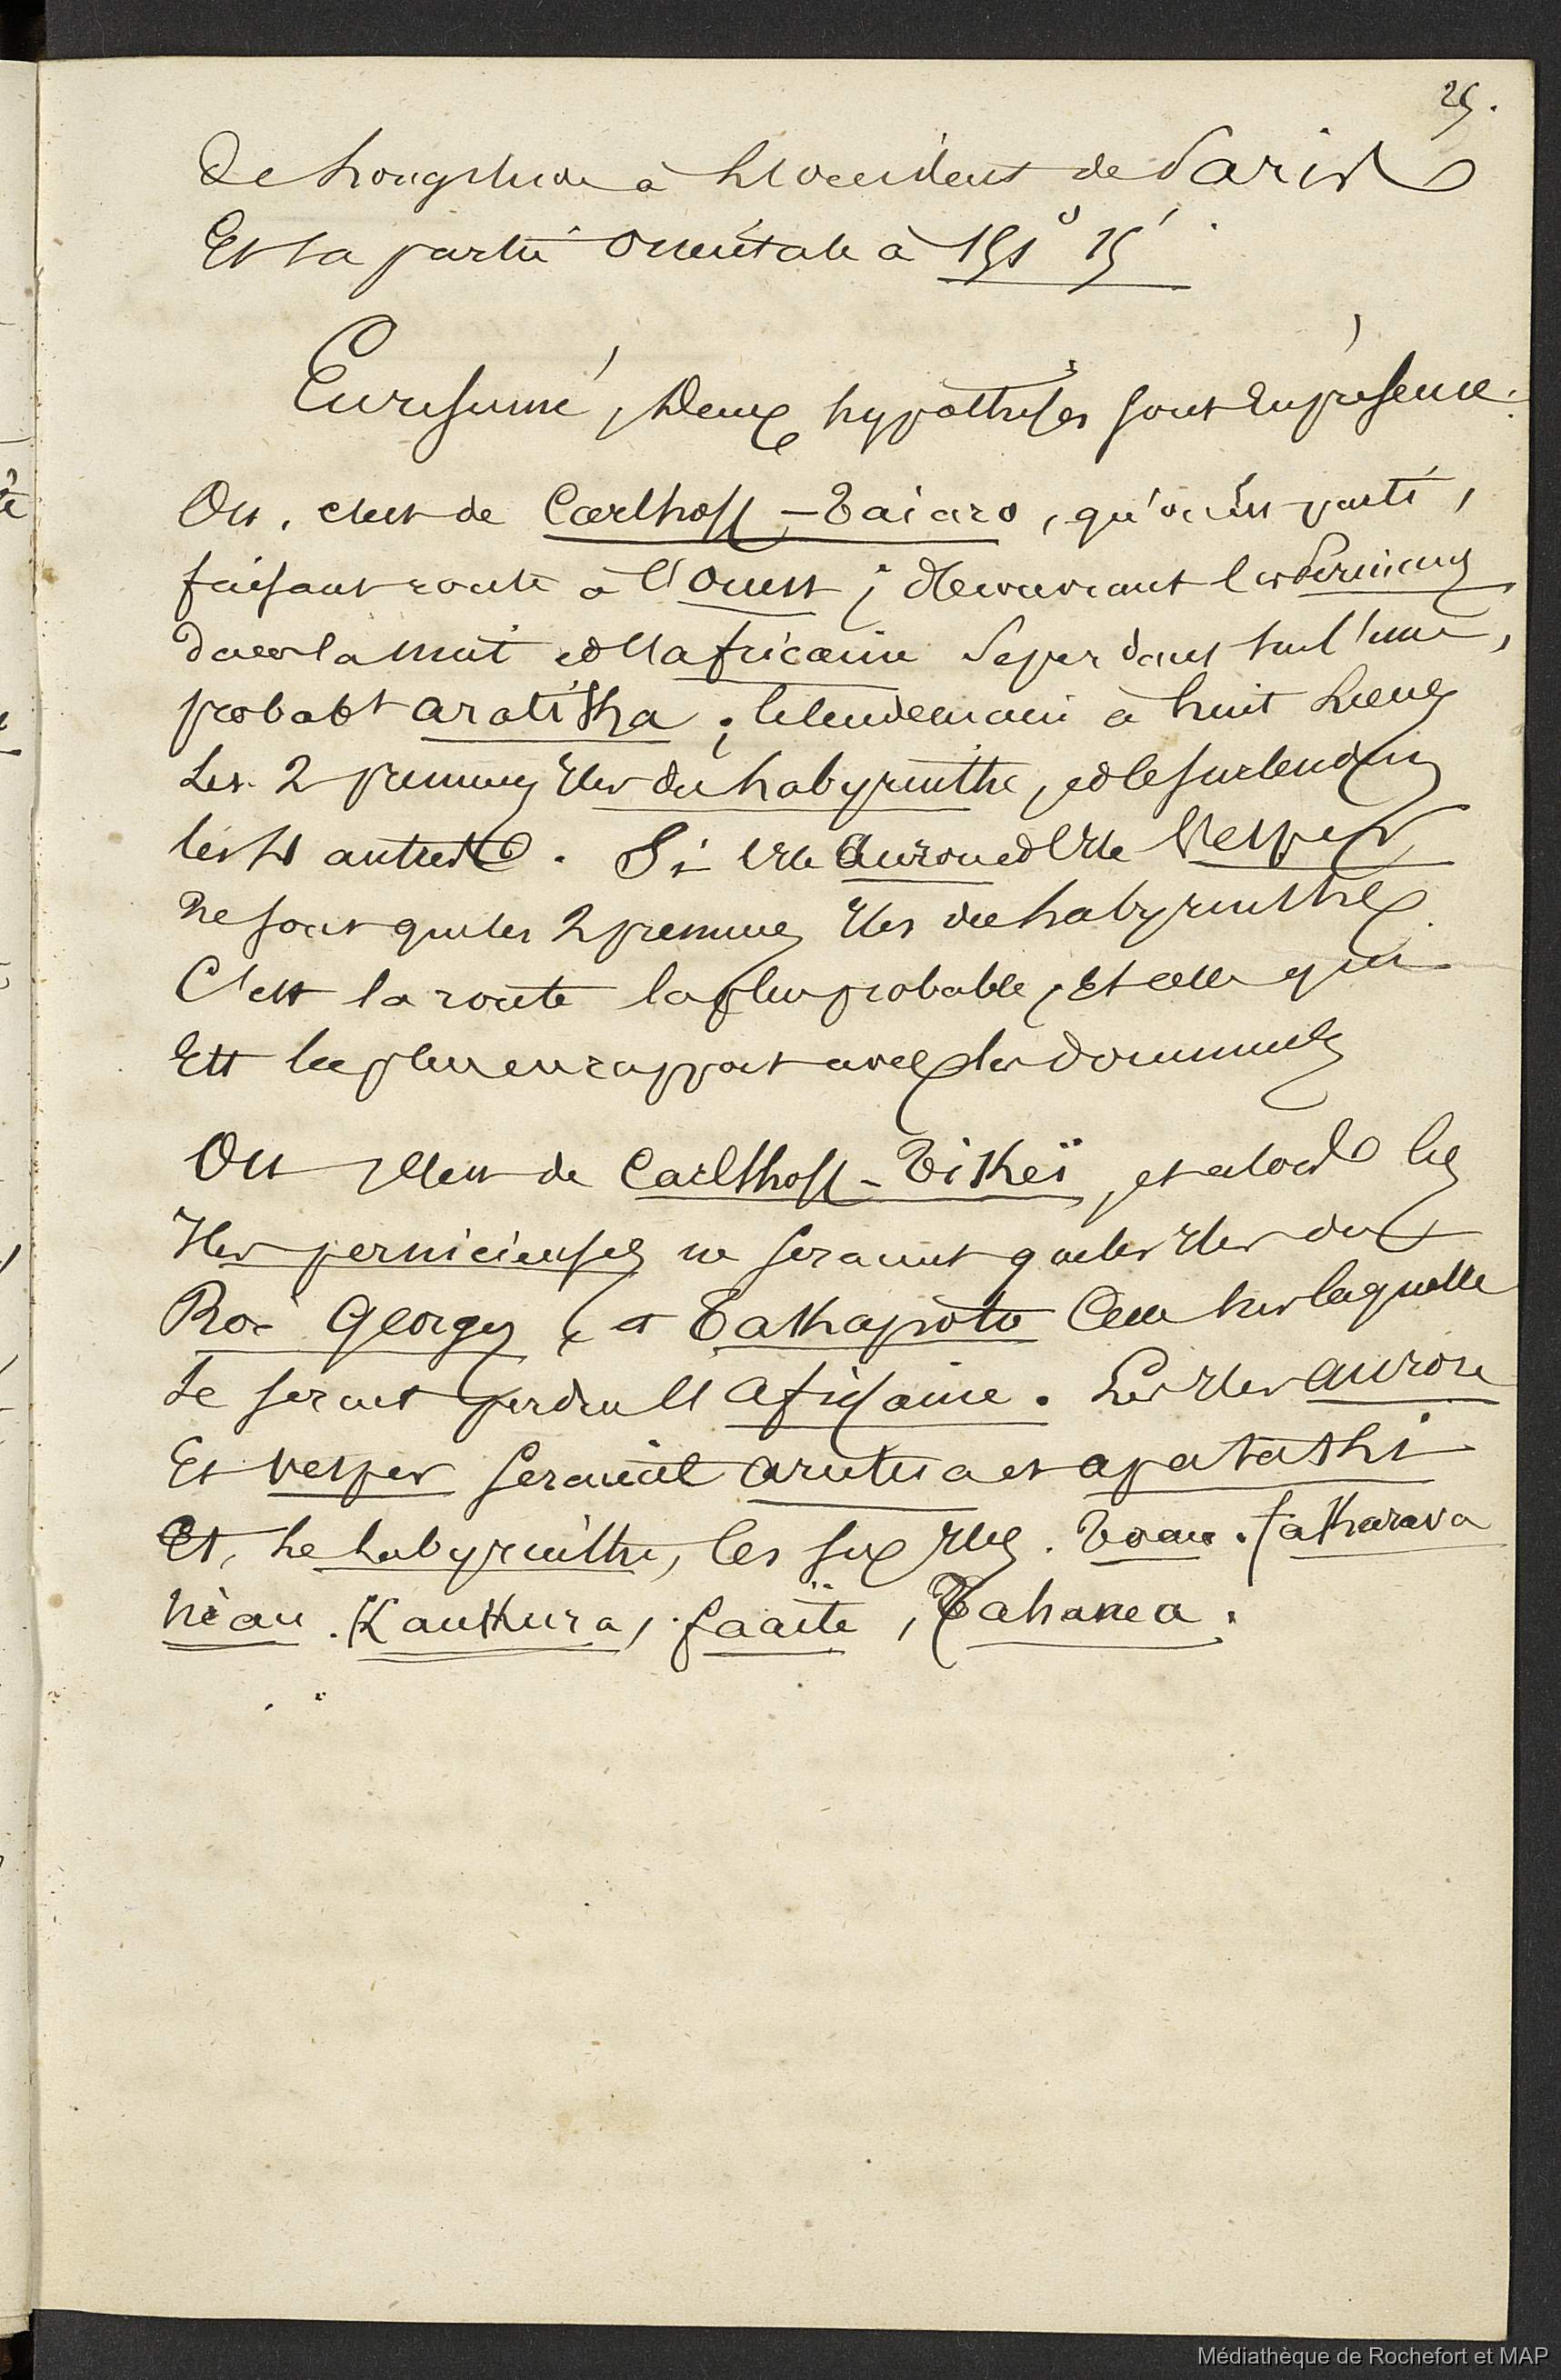 25.
De longitude à l'occident de Paris
Et sa partie orientale à 151° 15'
En résumé, deux hypothèses sont en présence :
Ou, c'est de Carlhoff - Taiaro, qu'on est parti,
faisant route à l'ouest ; découvrant les Pernicieuses
dans la nuit et l'africaine se perdant sur l'une,
probabt aratika ; le lendemain à huit lieues
Les 2 premieres Iles du Labyrinthe, et le surlendemain
les 4 autres. Si l'Ile Aurore et l'Ile Vesper
ne sont que les 2 premieres Iles du Labyrinthe
C'est la route la plus probable, et celle qui
Est la plus en rapport avec les documents
Ou c'est de Carlshoff - Tikeï, et alors les
Iles pernicieuses ne seraient que les Iles du
Roi Georges, et Takapoto celle sur laquelle
se serait perdue l'Africaine. Les Iles aurore
Et vesper seraient arutua et apatathi
Et, le Labyrinthe, les six Iles. Toau. fakarava
niau. Kaukura, faaïte, Tahanea.
Médiathèque de Rochefort et MAP